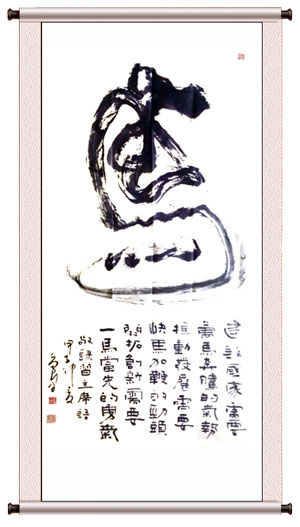 馬
建設國家需要
萬馬奔騰的氣勢
推動發展需要
快馬加鞭的勁頭
開拓創新需要
一馬當先的勇氣
敬錄習主席語
甲午仲夏